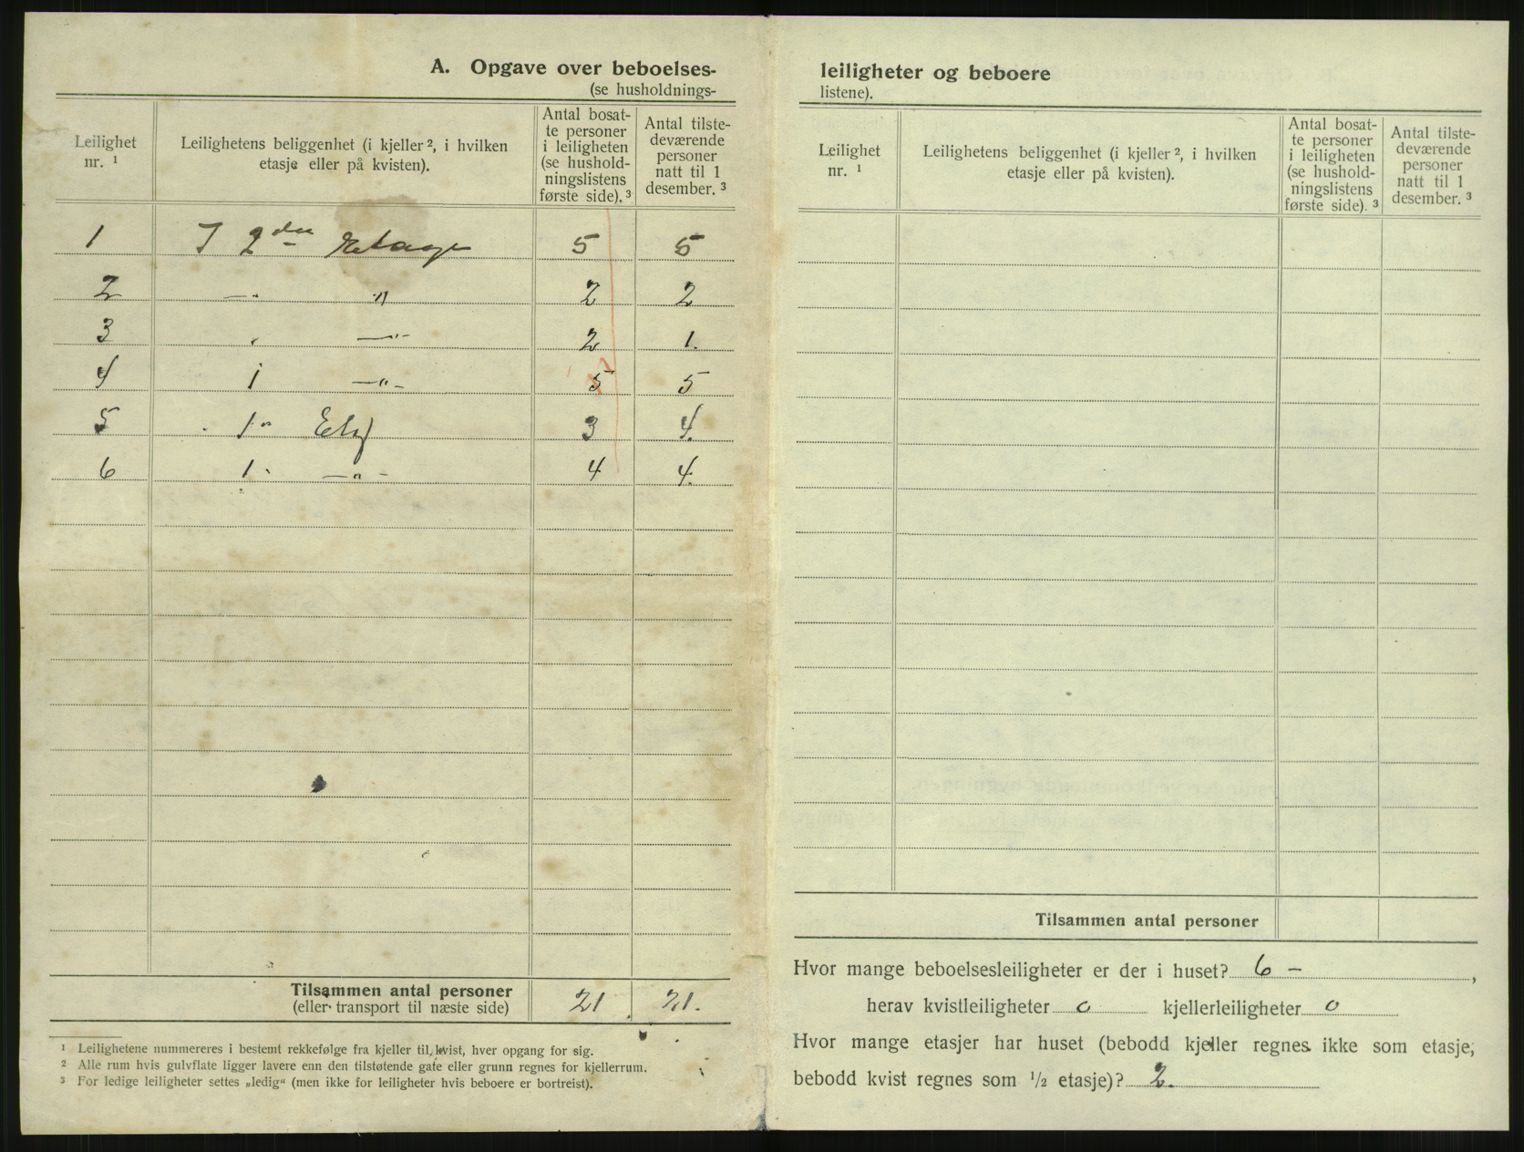 A. Opgave over beboelses-
(se husholdnings-
Leilighet nr. ¹
Leilighetens beliggenhet (i kjeller ², i hvilken etasje eller på kvisten).
Antal bosatte personer i leiligheten (se husholdningslistens første side). ³
Antal tilstedeværende personer natt til 1 desember. ³
1 I 2den Etage 5 5
2 —〃 〃 2 2
3 〃 —〃— 2 1.
4 i —〃— 5 5
5 1〃 Etg 3 4.
6 1. —〃— 4 4.
Tilsammen antal personer
(eller transport til næste side) 21. 21.
¹ Leilighetene nummereres i bestemt rekkefølge fra kjeller til kvist, hver opgang for sig.
² Alle rum hvis gulvflate ligger lavere enn den tilstøtende gate eller grunn regnes for kjellerrum.
³ For ledige leiligheter settes „ledig“ (men ikke for leiligheter hvis beboere er bortreist).
leiligheter og beboere
listene).
Leilighet nr. ¹
Leilighetens beliggenhet (i kjeller ², i hvilken etasje eller på kvisten).
Antal bosatte personer i leiligheten (se husholdningslistens første side). ³
Antal tilstedeværende personer natt til 1 desember. ³
Tilsammen antal personer
Hvor mange beboelsesleiligheter er der i huset? 6 — ,
herav kvistleiligheter 0 kjellerleiligheter 0
Hvor mange etasjer har huset (bebodd kjeller regnes ikke som etasje,
bebodd kvist regnes som ½ etasje)? 2.